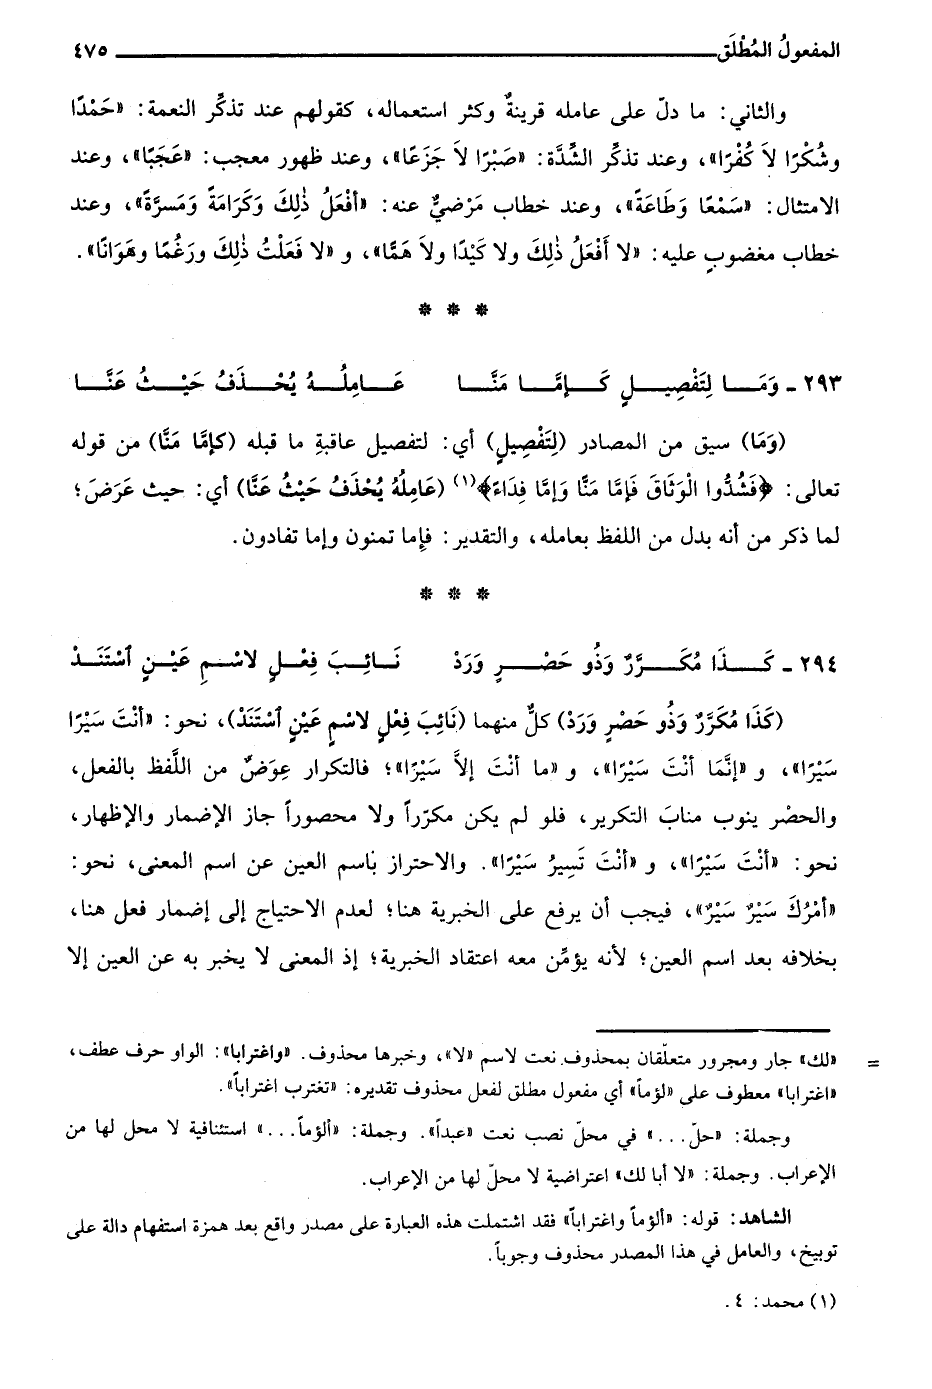 المفعولُ المُطْلَق ٤٧٥
والثاني: ما دلّ على عامله قرينةٌ وكثر استعماله، كقولهم عند تذكّر النعمة: «حَمْدًا
وشُكْرًا لاَ كُفْرًا»، وعند تذكّر الشّدَّة: «صَبْرًا لاَ جَزَعًا»، وعند ظهور معجب: «عَجَبًا»، وعند
الامتثال: «سَمْعًا وَطَاعَةً»، وعند خطاب مَرْضيٍّ عنه: «أفْعَلُ ذٰلِكَ وَكَرَامَةً وَمَسرَّةً»، وعند
خطاب مغضوبٍ عليه: «لا أَفْعَلُ ذٰلِكَ ولا كَيْدًا ولاَ هَمًّا»، و «لا فَعَلْتُ ذٰلِكَ ورَغْمًا وهَوَانًا».
* * *
٢٩٣ ـ وَمَـا لِتَفْصِيـلٍ كَـإمَّـا مَنَّـا عَـامِلُـهُ يُحْـذَفُ حَيْـثُ عَنَّـا
(وَمَا) سيق من المصادر (لِتَفْصِيلٍ) أي: لتفصيل عاقبةِ ما قبله (كإمَّا مَنَّا) من قوله
تعالى: ﴿فَشُدُّوا الْوَثَاقَ فَإمَّا مَنًّا وَإمَّا فِدَاءً﴾(١) (عَامِلُهُ يُحْذَفُ حَيْثُ عَنَّا) أي: حيث عَرَضَ؛
لما ذكر من أنه بدل من اللفظ بعامله، والتقدير: فإما تمنون وإما تفادون.
* * *
٢٩٤ ـ كَـذَا مُكَـرَّرٌ وَذُو حَصْـرٍ وَرَدْ نَـائِـبَ فِعْـلٍ لاسْـمِ عَيْـنٍ ٱسْتَنَـدْ
(كَذَا مُكَرَّرٌ وَذُو حَصْرٍ وَرَدْ) كلٌّ منهما (نَائِبَ فِعْلٍ لاسْمِ عَيْنٍ ٱسْتَنَدْ)، نحو: «أنْتَ سَيْرًا
سَيْرًا»، و «إنَّمَا أنْتَ سَيْرًا»، و «ما أنْتَ إلاَّ سَيْرًا»؛ فالتكرار عِوَضٌ من اللَّفظ بالفعل،
والحصْر ينوب منابَ التكرير، فلو لم يكن مكرّراً ولا محصوراً جاز الإضمار والإظهار،
نحو: «أنْتَ سَيْرًا»، و «أنْتَ تَسِيرُ سَيْرًا». والاحتراز بَاسم العين عن اسم المعنى، نحو:
«أمْرُكَ سَيْرٌ سَيْرٌ»، فيجب أن يرفع على الخبرية هنا؛ لعدم الاحتياج إلى إضمار فعل هنا،
بخلافه بعد اسم العين؛ لأنه يؤمِّن معه اعتقاد الخبرية؛ إذ المعنى لا يخبر به عن العين إلا
= «لك» جار ومجرور متعلّقان بمحذوف نعت لاسم «لا»، وخبرها محذوف. «واغترابا»: الواو حرف عطف،
«اغترابا» معطوف على «لؤماً» أي مفعول مطلق لفعل محذوف تقديره: «تغترب اغتراباً».
وجملة: «حلّ...» في محلّ نصب نعت «عبداً». وجملة: «ألؤماً...» استئنافية لا محل لها من
الإعراب. وجملة: «لا أبا لك» اعتراضية لا محلّ لها من الإعراب.
الشاهد: قوله: «ألؤماً واغتراباً» فقد اشتملت هذه العبارة على مصدر واقع بعد همزة استفهام دالة على
توبيخ، والعامل في هذا المصدر محذوف وجوباً.
(١) محمد: ٤.